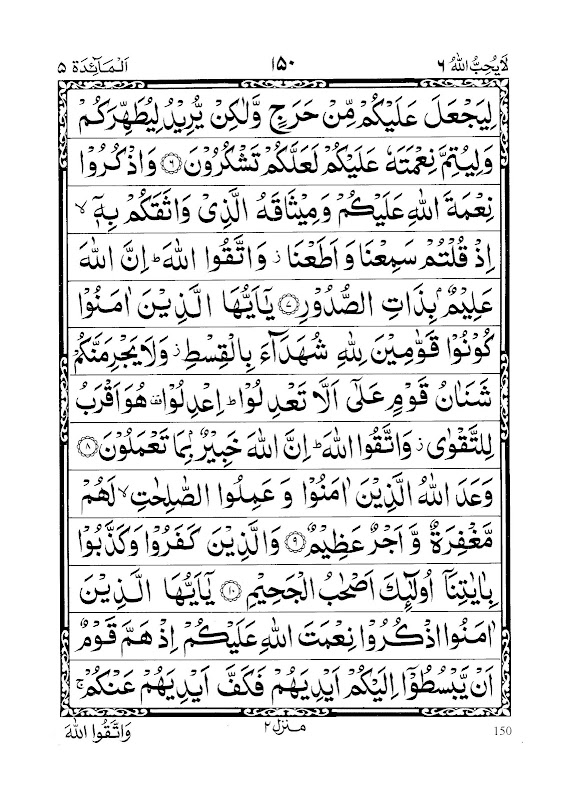 لَا يُحِبُّ اللهُ ٦ ١٥٠ اَلْمَآئِدَة ٥
لِيَجْعَلَ عَلَيْكُمْ مِّنْ حَرَجٍ وَّلٰكِنْ يُّرِيْدُ لِيُطَهِّرَكُمْ
وَلِيُتِمَّ نِعْمَتَهٗ عَلَيْكُمْ لَعَلَّكُمْ تَشْكُرُوْنَ ۝٦ وَاذْكُرُوْا
نِعْمَةَ اللهِ عَلَيْكُمْ وَمِيْثَاقَهُ الَّذِيْ وَاثَقَكُمْ بِهٖٓ ۙ
اِذْ قُلْتُمْ سَمِعْنَا وَاَطَعْنَا ز وَاتَّقُوا اللهَ ؕ اِنَّ اللهَ
عَلِيْمٌۢ بِذَاتِ الصُّدُوْرِ ۝٧ يٰٓاَيُّهَا الَّذِيْنَ اٰمَنُوْا
كُوْنُوْا قَوّٰمِيْنَ لِلّٰهِ شُهَدَآءَ بِالْقِسْطِ ز وَلَا يَجْرِمَنَّكُمْ
شَنَاٰنُ قَوْمٍ عَلٰٓى اَلَّا تَعْدِلُوْا ؕ اِعْدِلُوْا ۫ هُوَ اَقْرَبُ
لِلتَّقْوٰى ز وَاتَّقُوا اللهَ ؕ اِنَّ اللهَ خَبِيْرٌۢ بِمَا تَعْمَلُوْنَ ۝٨
وَعَدَ اللهُ الَّذِيْنَ اٰمَنُوْا وَعَمِلُوا الصّٰلِحٰتِ ۙ لَهُمْ
مَّغْفِرَةٌ وَّاَجْرٌ عَظِيْمٌ ۝٩ وَالَّذِيْنَ كَفَرُوْا وَكَذَّبُوْا
بِاٰيٰتِنَآ اُولٰٓئِكَ اَصْحٰبُ الْجَحِيْمِ ۝١٠ يٰٓاَيُّهَا الَّذِيْنَ
اٰمَنُوا اذْكُرُوْا نِعْمَتَ اللهِ عَلَيْكُمْ اِذْ هَمَّ قَوْمٌ
اَنْ يَّبْسُطُوْٓا اِلَيْكُمْ اَيْدِيَهُمْ فَكَفَّ اَيْدِيَهُمْ عَنْكُمْ ۚ
وَاتَّقُوا اللهَ منزل ٢ 150